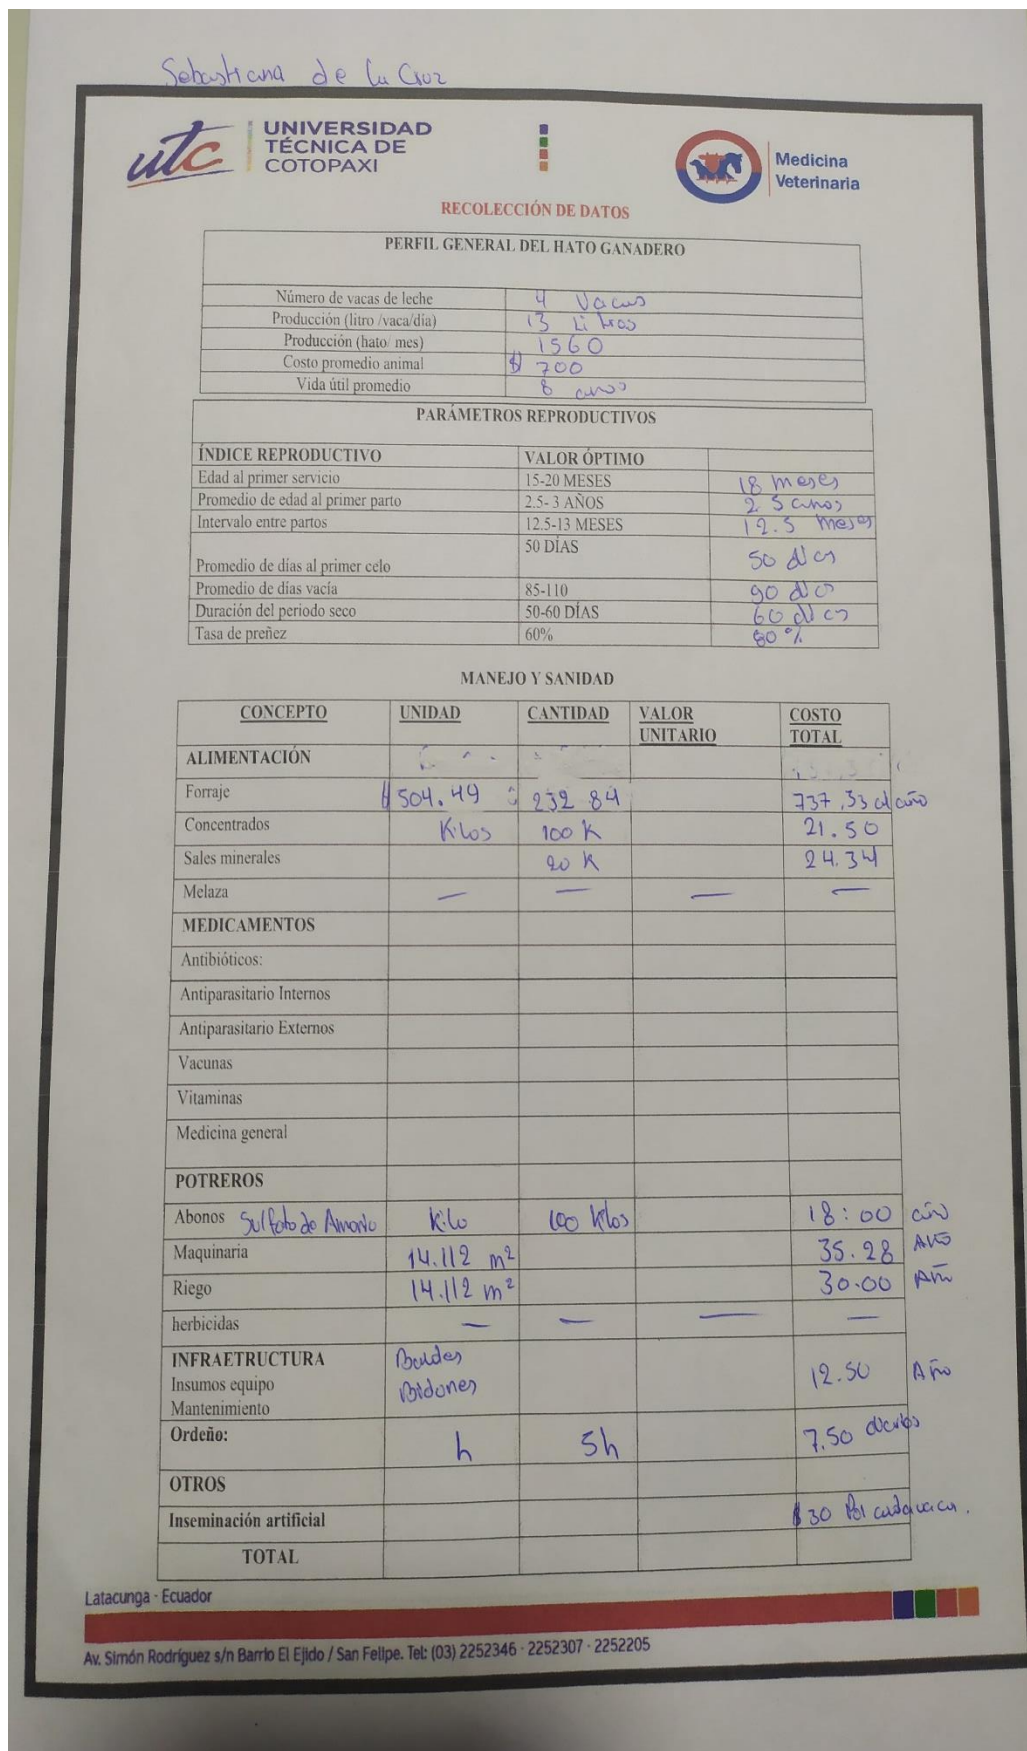 Sebastiana de la Cruz
utc UNIVERSIDAD TÉCNICA DE COTOPAXI
Medicina Veterinaria
RECOLECCIÓN DE DATOS
PERFIL GENERAL DEL HATO GANADERO
Número de vacas de leche 4 Vacas
Producción (litro /vaca/día) 13 Litros
Producción (hato/ mes) 1560
Costo promedio animal $ 700
Vida útil promedio 8 años
PARÁMETROS REPRODUCTIVOS
ÍNDICE REPRODUCTIVO VALOR ÓPTIMO
Edad al primer servicio 15-20 MESES 18 meses
Promedio de edad al primer parto 2.5- 3 AÑOS 2.5 años
Intervalo entre partos 12.5-13 MESES 12.5 meses
Promedio de días al primer celo 50 DÍAS 50 dias
Promedio de días vacía 85-110 90 dias
Duración del periodo seco 50-60 DÍAS 60 dias
Tasa de preñez 60% 80%
MANEJO Y SANIDAD
CONCEPTO UNIDAD CANTIDAD VALOR UNITARIO COSTO TOTAL
ALIMENTACIÓN
Forraje 504.49 232 84 737,33 al año
Concentrados Kilos 100 K 21.50
Sales minerales 20 K 24.34
Melaza — — — —
MEDICAMENTOS
Antibióticos:
Antiparasitario Internos
Antiparasitario Externos
Vacunas
Vitaminas
Medicina general
POTREROS
Abonos Sulfato de Amonio Kilo 100 kilos 18:00 año
Maquinaria 14.112 m² 35.28 Año
Riego 14.112 m² 30.00 Año
herbicidas — — — —
INFRAETRUCTURA Baldes
Insumos equipo Bidones 12.50 Año
Mantenimiento
Ordeño: h 5h 7.50 diarios
OTROS
Inseminación artificial $30 Por cada vaca.
TOTAL
Latacunga - Ecuador
Av. Simón Rodríguez s/n Barrio El Ejido / San Felipe. Tel: (03) 2252346 - 2252307 - 2252205